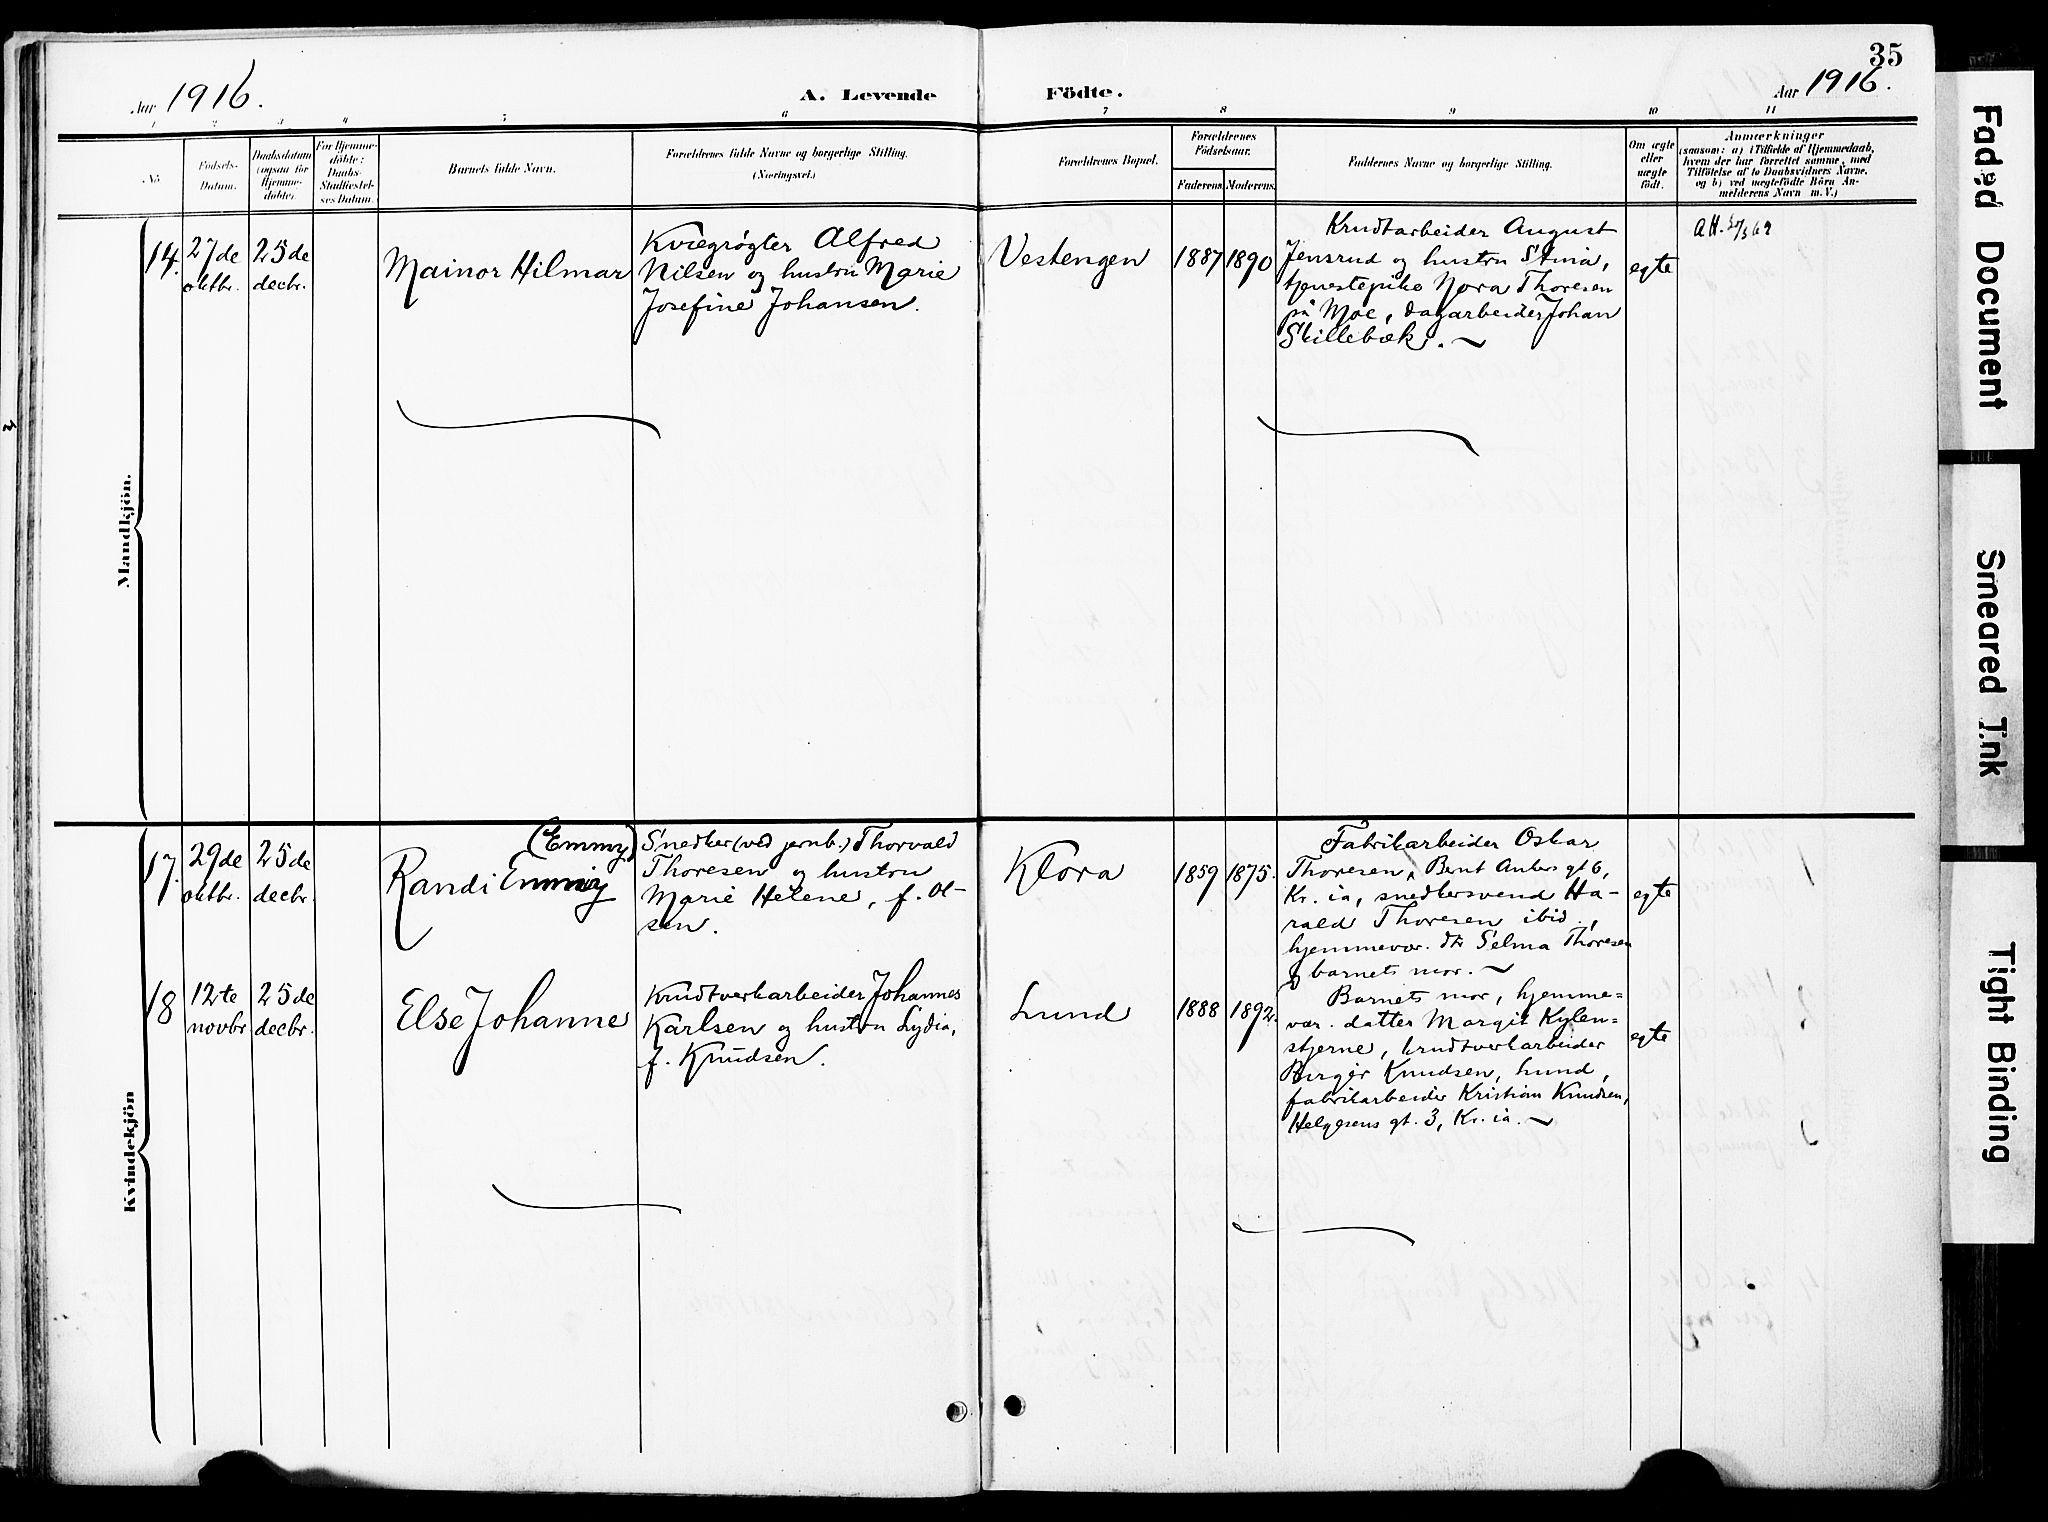 35
Aar 1916.
A. Levende Födte.
Aar 1916.
1 2 3 4 5 6 7 8 9 10 11
No
Födsels-
Datum.
Daabsdatum
(ogsaa for
Hjemme-
döbte).
For Hjemme-
döbte:
Daabs-
Stadfæstel-
ses Datum.
Barnets fulde Navn.
Forældrenes fulde Navne og borgerlige Stilling.
(Næringsvei.)
Forældrenes Bopæl.
Forældrenes
Födselsaar.
Faderens. Moderens.
Faddernes Navne og borgerlige Stilling.
Om ægte
eller
uægte
födt.
Anmærkninger
(saasom: a) i Tilfælde af Hjemmedaab,
hvem der har forrettet samme, med
Tilföielse af to Daabsvidners Navne,
og b) ved uægtefödte Börn An-
melderens Navn m. V.)
Mandkjön.
14.
27de
oktbr.
25de
decbr.
Mainor Hilmar
Kvægrøgter Alfred
Nilsen og hustru Marie
Josefine Johansen.
Vestengen
1887
1890
Krudtarbeider August
Jensrud og hustru Stina,
tjenestepike Nora Thoresen
på Moe, dagarbeider Johan
Skillebæk.
egte
Kvindekjön
17.
29de
oktbr.
25de
decbr.
(Emmy)
Randi Emmy
Snedker (ved jernb.) Thorvald
Thoresen og hustru
Marie Helene, f. Ol-
sen.
Klora
1859
1875.
Fabrikarbeider Oskar
Thoresen, Bernt Ankers gt 6,
Kr.ia, snedkersvend Ha-
rald Thoresen ibid.,
hjemmevær. dtr Selma Thoresen
og barnets mor.
egte
18
12te
novbr
25de
decbr.
Else Johanne
Krudtverkarbeider Johannes
Karlsen og hustru Lydia,
f. Knudsen.
Lund
1888
1892.
Barnets mor, hjemme=
vær. datter Margit Kylen=
stjerne, krudtverkarbeider
Birger Knudsen, Lund,
fabrikarbeider Kristian Knudsen,
Helgesens gt. 3, Kr.ia.
egte
Faded Document
Smeared Ink
Tight Binding